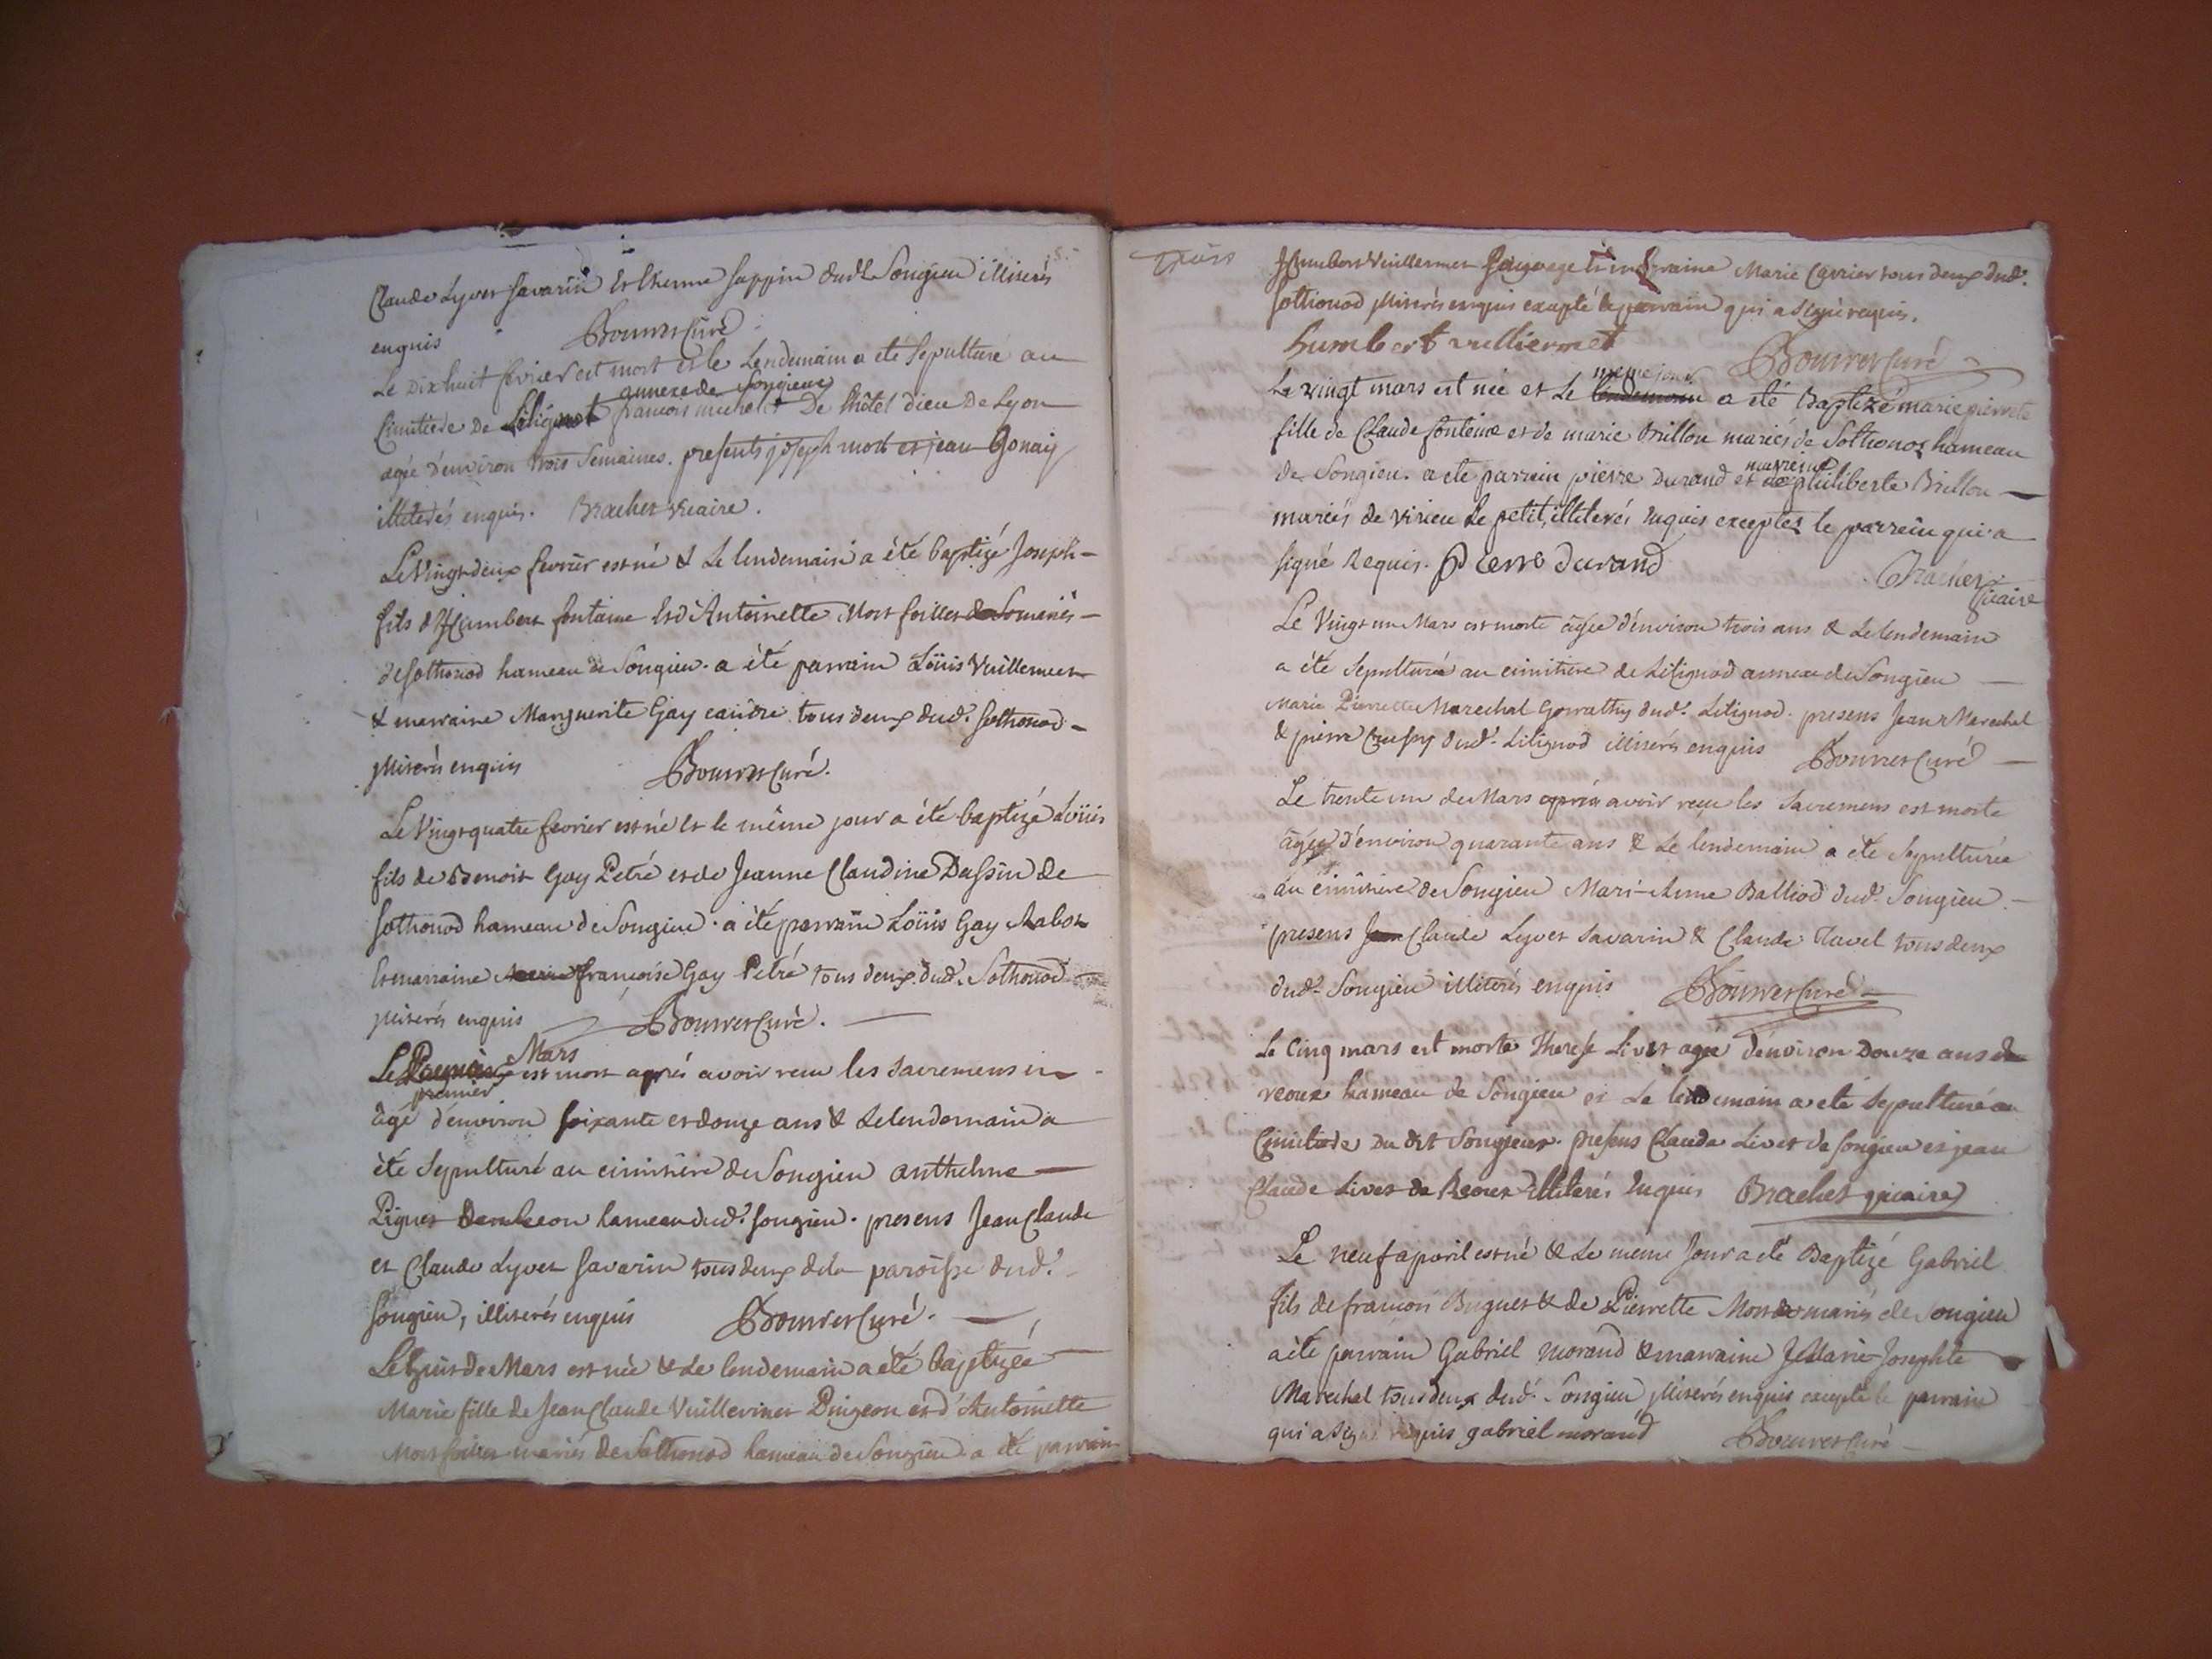 Claude Lyvet Savarin et therme sappin dud. Songieu illiterés
enquis Bouvet Curé
Le Dix huit fevrier est mort et le Lendemain a eté sepulturé au
annexe de Songieux
Cimitiere De Litignot francois michelet De l'hôtel dieu De Lyon
agée d'environ trois semaines. presents joseph mort et jean Gonay
illiterés enquis. Brachet vicaire.
Le Vingt deux fevrier est né & Le lendemain a été baptizé Joseph
fils d'Humbert fontaine et d'Antoinette Mort foillet mariés
de sothonod hameau de Songieu. a été parrain Loüis Vuillermet
& marraine Marguerite Gay tous deux dud. Sothonod
illiterés enquis Bouvet Curé.
Le Vingt quatre fevrier est né et le même jour a été baptizé Loüis
fils de Benoit Gay Petré et de Jeanne Claudine Dussin de
sothonod hameau de Songieu. a été parrain Loüis Gay Rabot
et marraine françoise Gay Petré tous deux dud. Sothonod
illiterés enquis Bouvet Curé.
Mars
Le est mort aprés avoir reçu les sacremens
premier
âgé d'environ soixante et douze ans & le lendemain a
été sepulturé au cimitière de Songieu anthelme
Piguet hameau dud. songieu. presens Jean Claude
et Claude Lyvet Savarin tous deux de la paroisse dud.
songieu, illiterés enquis Bouvet Curé.
Le huit de Mars est née & Le lendemain a été baptizée
Marie fille de Jean Claude Vuillermet Pingeon et d'Antoinette
Mort foillet mariés de Sothonod hameau de Songieu a été parrain
Humbert Vuillermet et marraine Marie Carrier tous deux dud.
sothonod illiterés enquis excepté le parrain qui a signé requis.
humbert vulliermet Bouvet Curé
meme jour
Le vingt mars est née et Le lendemain a été Baptizé marie pierrete
fille de Claude fonteine et de marie Brillon mariés de Sothonoz hameau
marreine
de Songieu. a ete parrein pierre Durand et philiberte Brillon
mariés de virieu Le petit, illiterés enquis exceptez le parrein qui a
signé Requis. Pierre durand Brachet
vicaire
Le Vingt un Mars est morte âgée d'environ trois ans & Le lendemain
a été sepulturée au cimitière de Litignod annexe de Songieu
Marie Pierrette Marechal Gorrathy dud. Litignod. presens Jean Marechal
& pierre Crussy dud. Litignod illiterés enquis Bouvet Curé
Le trente un de Mars aprés avoir reçu les Sacremens est morte
âgée d'environ quarante ans & Le lendemain a été sepulturée
au cimitière de Songieu Marie Anne Balliod dud. Songieu
presens Jean Claude Lyvet Savarin & Claude Tavel tous deux
dud. Songieu illiterés enquis Bouvet Curé
Le Cinq mars est morte Therese Livet agée d'environ Douze ans de
reoux hameau de Songieu et Le lendemain a eté sepulturé au
Cimitiere Du dit Songieux. presens Claude Livet de songieu et jean
Claude Livet de Reoux illiterés enquis Brachet vicaire
Le neuf apvril est né & Le meme Jour a eté Baptizé Gabriel
fils de francois Buguet & de Pierrette Mort mariés de Songieu
a été parrain Gabriel morand & marraine Marie Josephte
Marechal tous deux dud. Songieu illiterés enquis excepté le parrain
qui a signé requis gabriel morand Bouvet Curé